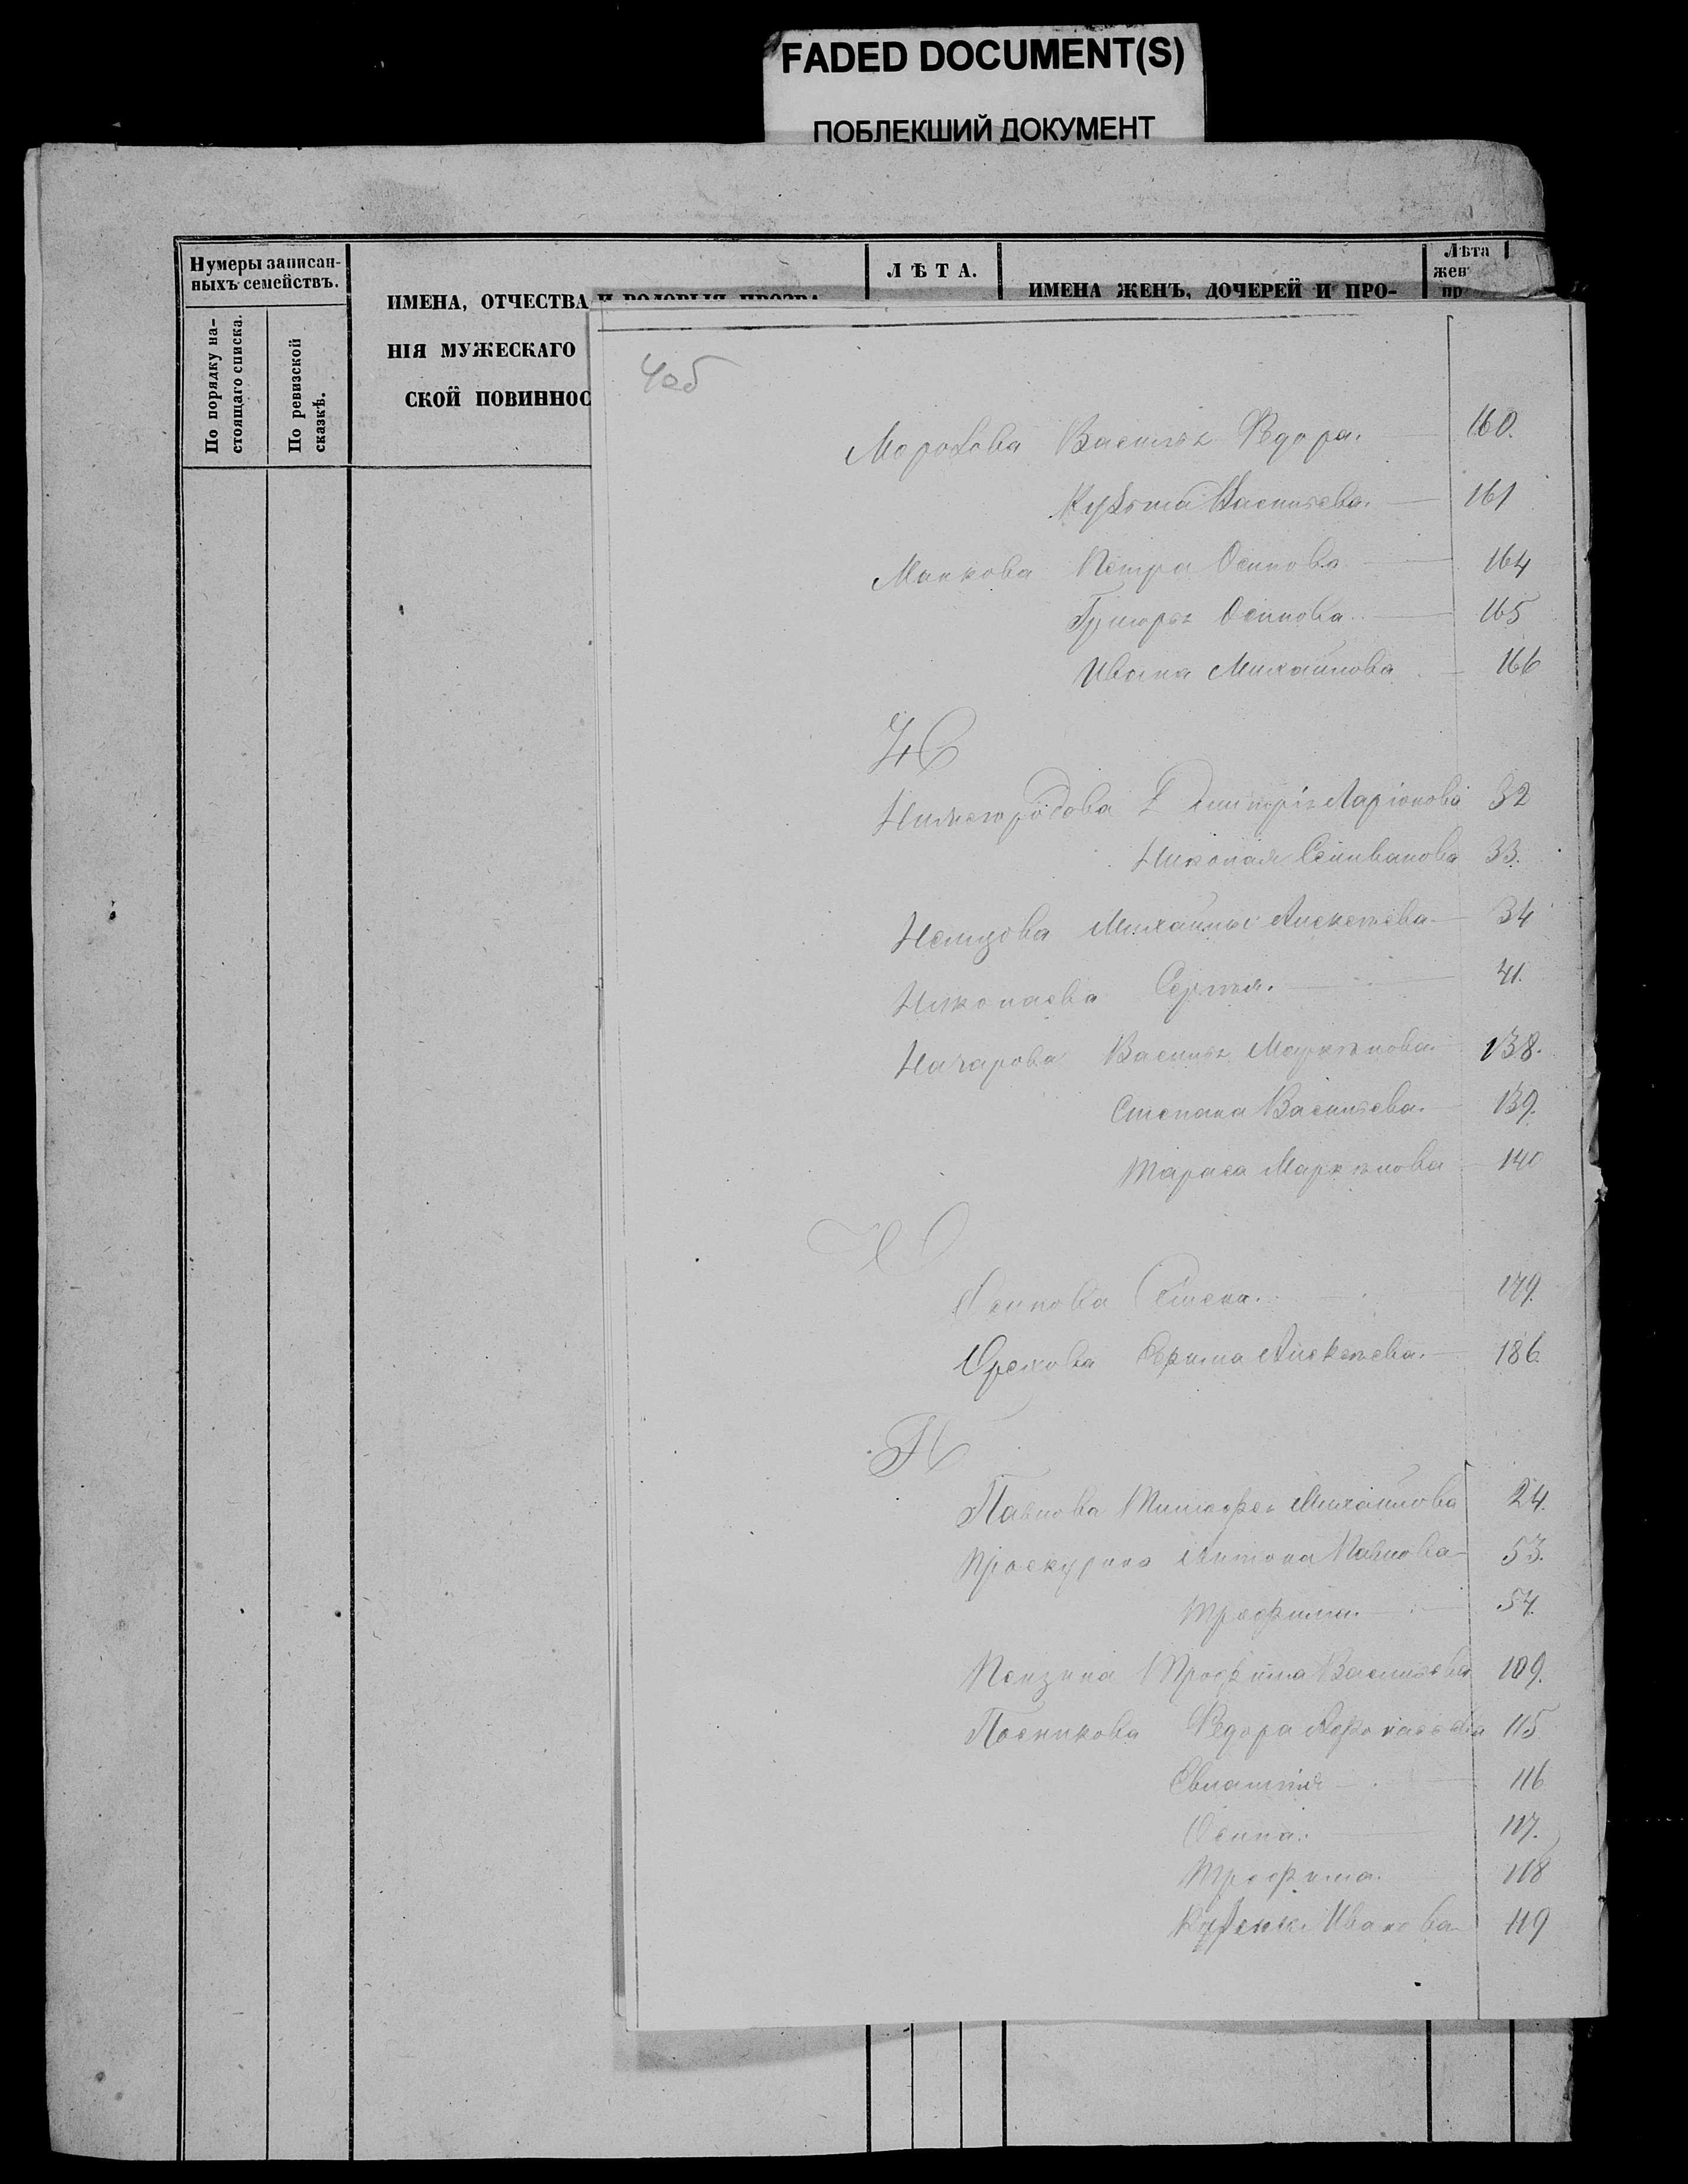 FADED DOCUMENT(S)
ПОБЛЕКШИЙ ДОКУМЕНТ
Нумеры записан-
ныхъ семействъ.
По порядку на-
стоящаго списка.
По ревизской
сказкѣ.
ИМЕНА, ОТЧЕСТВА И РОДОВЫЯ ПРОЗВА-
НІЯ МУЖЕСКАГО
СКОЙ ПОВИННОС
ЛѢТА.
ИМЕНА ЖЕНЪ, ДОЧЕРЕЙ И ПРО-
Лѣта
жен
пр
4об
Морозова Василья Ѳедора. 160.
Кузьма Васильева. 161
Манкова Петра Осипова 164
Григорья Осипова. 165
Ивана Михайлова 166
Н
Нижегородова Дмитрія Ларіонова 32
Николая Селиванова 33.
Немцова Михайлы Алексѣева 34
Николаева Сергѣя. 41.
Начарова Василья Маркѣлова 138.
Степана Васильева. 139.
Тараса Маркѣлова 140
О
Осипова Семена. 179.
Орехова Ефима Алексѣева. 186.
П
Павлова Тимофея Михайлова 24.
Проскурина Антона Павлова 53.
Трофима. 54.
Пензина Трофима Васильева 109.
Посникова Ѳедора Афонасьева 115
Евлампія 116
Осипа. 117.
Трофима. 118
Иванова 119